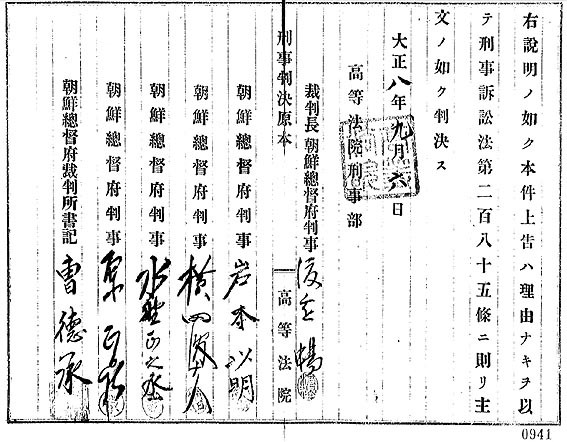 右說明ノ如ク本件上告ハ理由ナキヲ以
テ刑事訴訟法第二百八十五條ニ則リ主
文ノ如ク判決ス
大正八年九月六日
高等法院刑事部
裁判長 朝鮮總督府判事
刑事判決原本
高等法院
朝鮮總督府判事 岩本以明
朝鮮總督府判事 橫田
朝鮮總督府判事 水野正之丞
朝鮮總督府判事 原正
朝鮮總督府裁判所書記 曹德承
0941